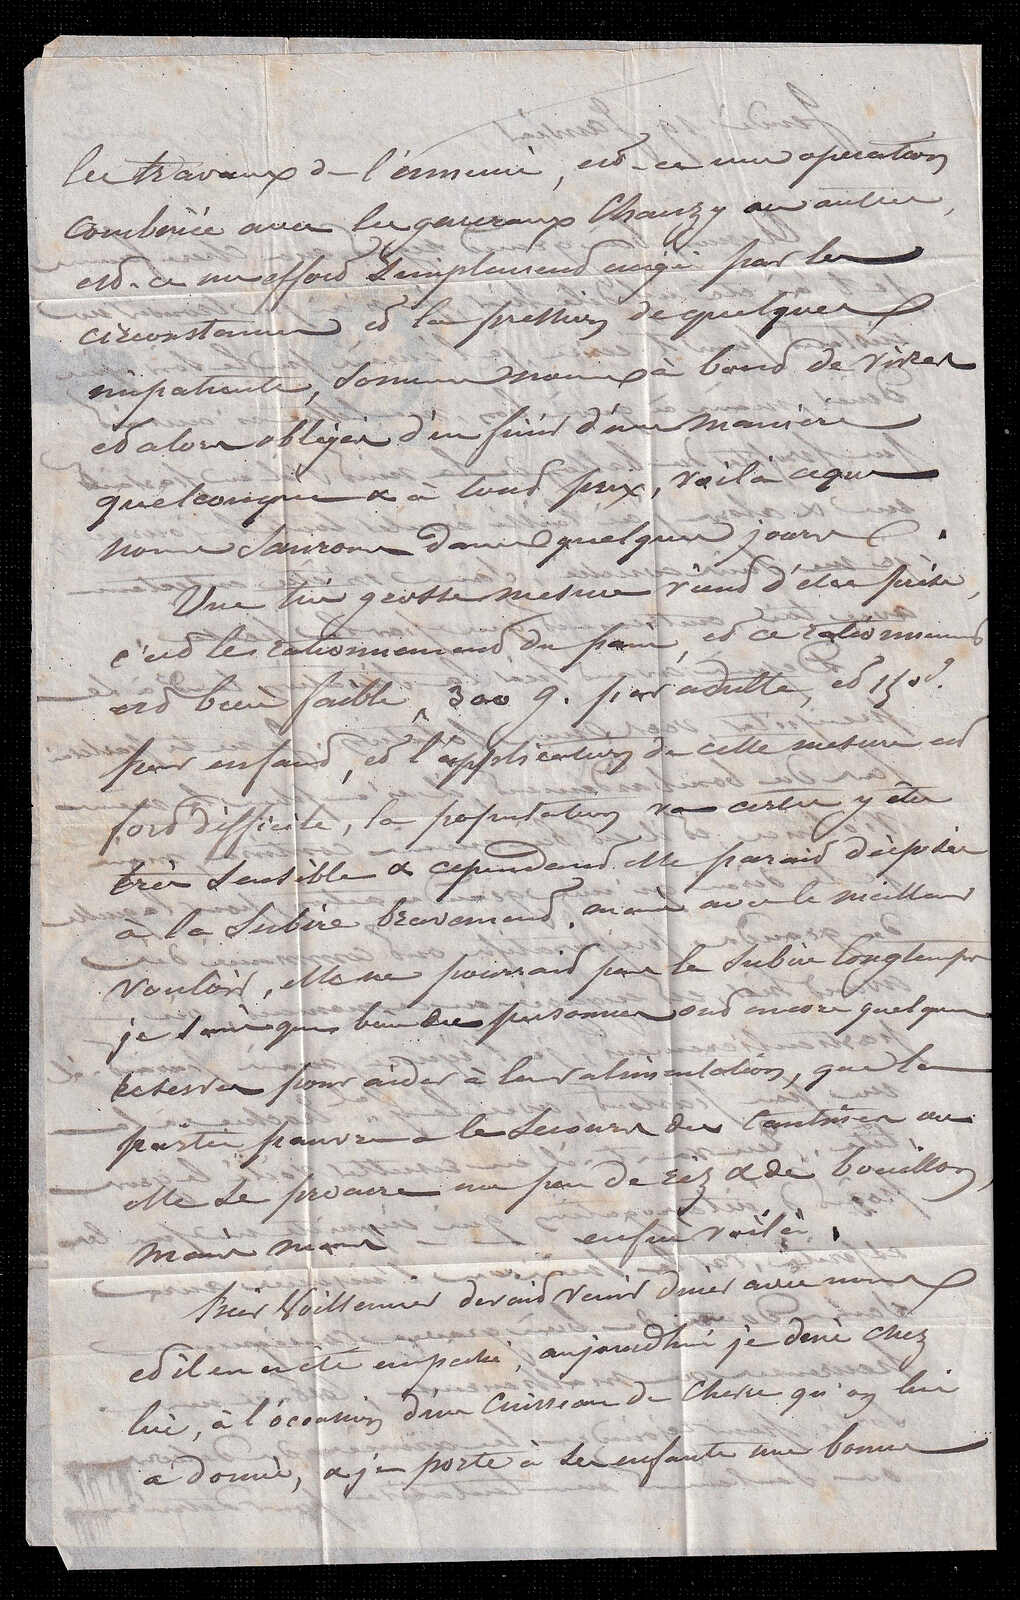 les travaux de l'ennemi, est-ce une operation
combinée avec les generaux Chanzy ou autres,
est-ce un effort simplement exigé par les
circonstances et la pression de quelques
impatients, sommes nous à bout de vivres
et alors obligés d'en finir d'une manière
quelconque & à tout prix, voilà ce que
nous saurons dans quelques jours.
Une très grosse mesure vient d'être prise,
c'est le rationnement du pain, et ce rationnement
est bien faible, 300 g. par adulte, et 150 d°.
par enfant, et l'application de cette mesure est
fort difficile, la population va certes y être
très sensible & cependant elle parait disposée
à la subire bravement, mais avec le meilleur
vouloir, elle ne pourrait pas le subire longtemps
je sais que bien des personnes ont encore quelques
reserves pour aider à leur alimentation, que la
partie pauvre a le secours des cantines ou
elle se procure un peu de riz & de bouillon,
mais mais — enfin voilà.
hier Voillemier devait venir diner avec nous
et il en a été empeché, aujourd'hui je dine chez
lui, à l'occasion d'un cuisseau de chevre qu'on lui
a donné, & je porte à ses enfants une bonne